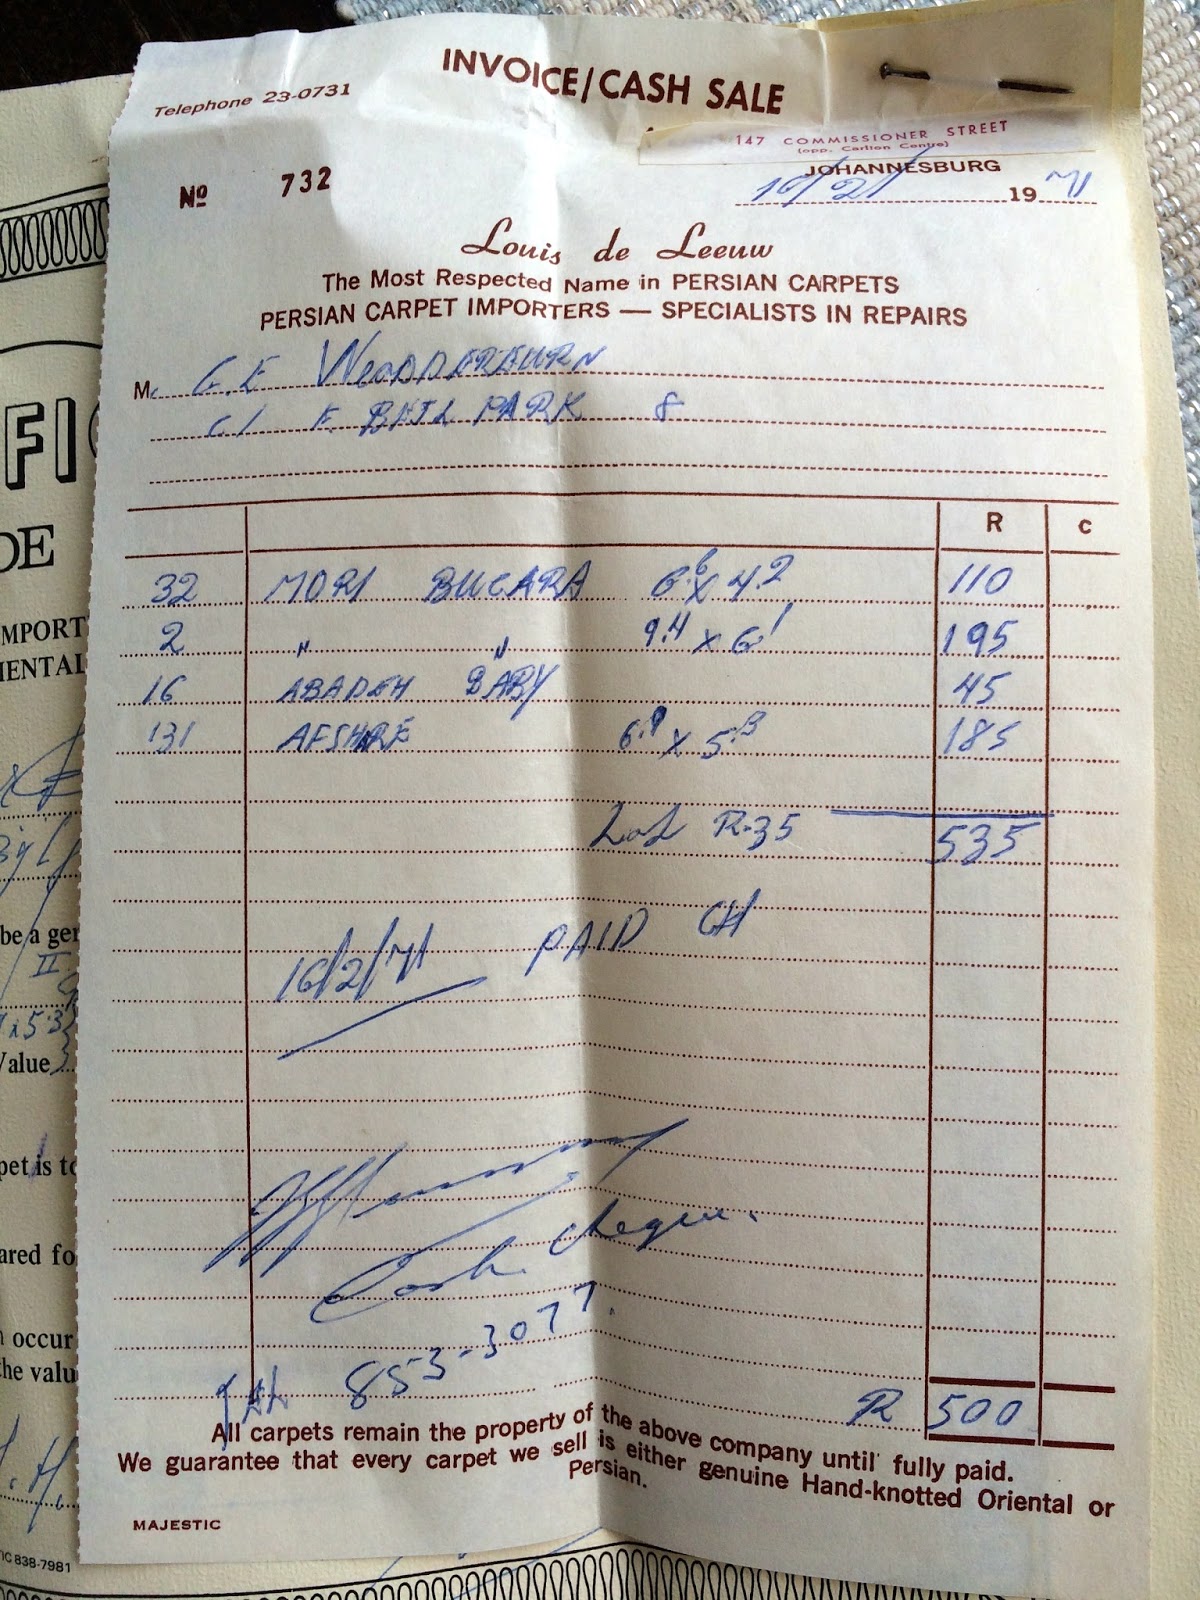 INVOICE/CASH SALE
Telephone 23-0731
147 COMMISSIONER STREET
(opp. Carlton Centre)
JOHANNESBURG
Nº 732
16/2/ 19 71
Louis de Leeuw
The Most Respected Name in PERSIAN CARPETS
PERSIAN CARPET IMPORTERS — SPECIALISTS IN REPAIRS
M. G.E
PARK 8
R c
32 MORI BUCARA 6.6 x 4.2 110
2 " " 9.4 x 6.1 195
16 ABADEH BABY 45
131 AFSHRE 6.9 x 5.3 185
R.35 535
16/2/71 PAID CH
Cash cheque.
TEL 853-3077.
R 500
All carpets remain the property of the above company until fully paid.
We guarantee that every carpet we sell is either genuine Hand-knotted Oriental or
Persian.
MAJESTIC
FI
DE
IMPORT
IENTAL
be a ger
II
x 5.3
Value
pet is to
ared fo
n occur
the valu
IC 838-7981